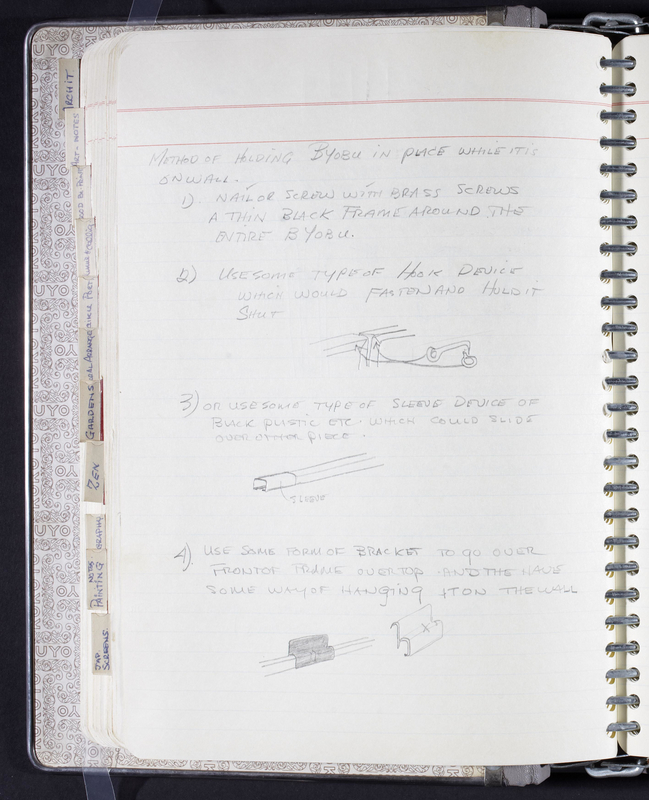 METHOD OF HOLDING BYOBU IN PLACE WHILE IT IS
ON WALL.
1) NAIL OR SCREW WITH BRASS SCREWS
A THIN BLACK FRAME AROUND THE
ENTIRE BYOBU.
2) USE SOME TYPE OF HOOK DEVICE
WHICH WOULD FASTEN AND HOLD IT
SHUT
3) OR USE SOME TYPE OF SLEEVE DEVICE OF
BLACK PLASTIC ETC. WHICH COULD SLIDE
OVER OTHER PIECE.
SLEEVE
4) USE SOME FORM OF BRACKET TO GO OVER
FRONT OF FRAME OVER TOP AND THE HAVE
SOME WAY OF HANGING IT ON THE WALL
RCHIT
NOTES
GARDENS
ZEN
GRAPHY
PAINTING
NOTES
JAP.
SCREENS.